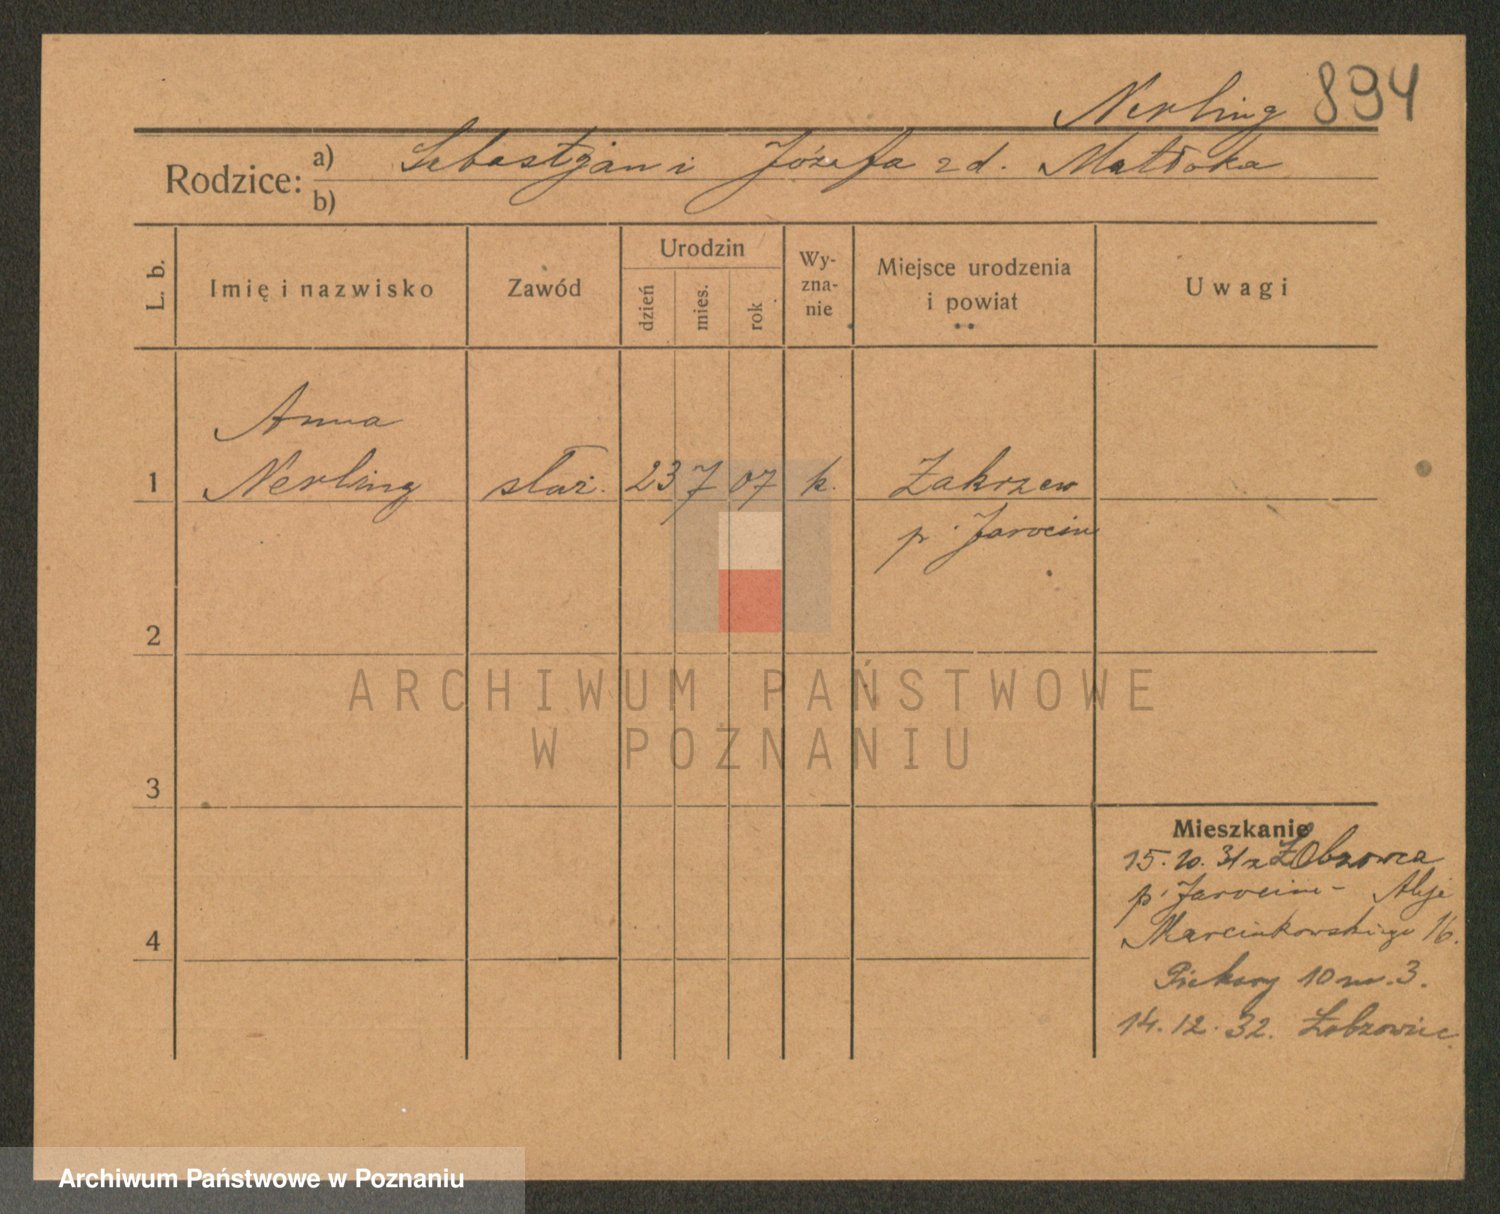 Nerling 894
Rodzice: a) Sebastjan i Józefa zd. Matłoka
b)
L. b.
Imię i nazwisko
Zawód
Urodzin
dzień
mies.
rok
Wy-
zna-
nie
Miejsce urodzenia
i powiat
Uwagi
Anna
1 Nerling służ. 23 7 07 k. Zakrzew
p. Jarocin
2
3
4
Mieszkanie
15.10.31 z
p. Jarocin - Aleje
Marcinkowskiego 16.
Piekary 10 m. 3.
14.12.32.
ARCHIWUM PAŃSTWOWE
W POZNANIU
Archiwum Państwowe w Poznaniu